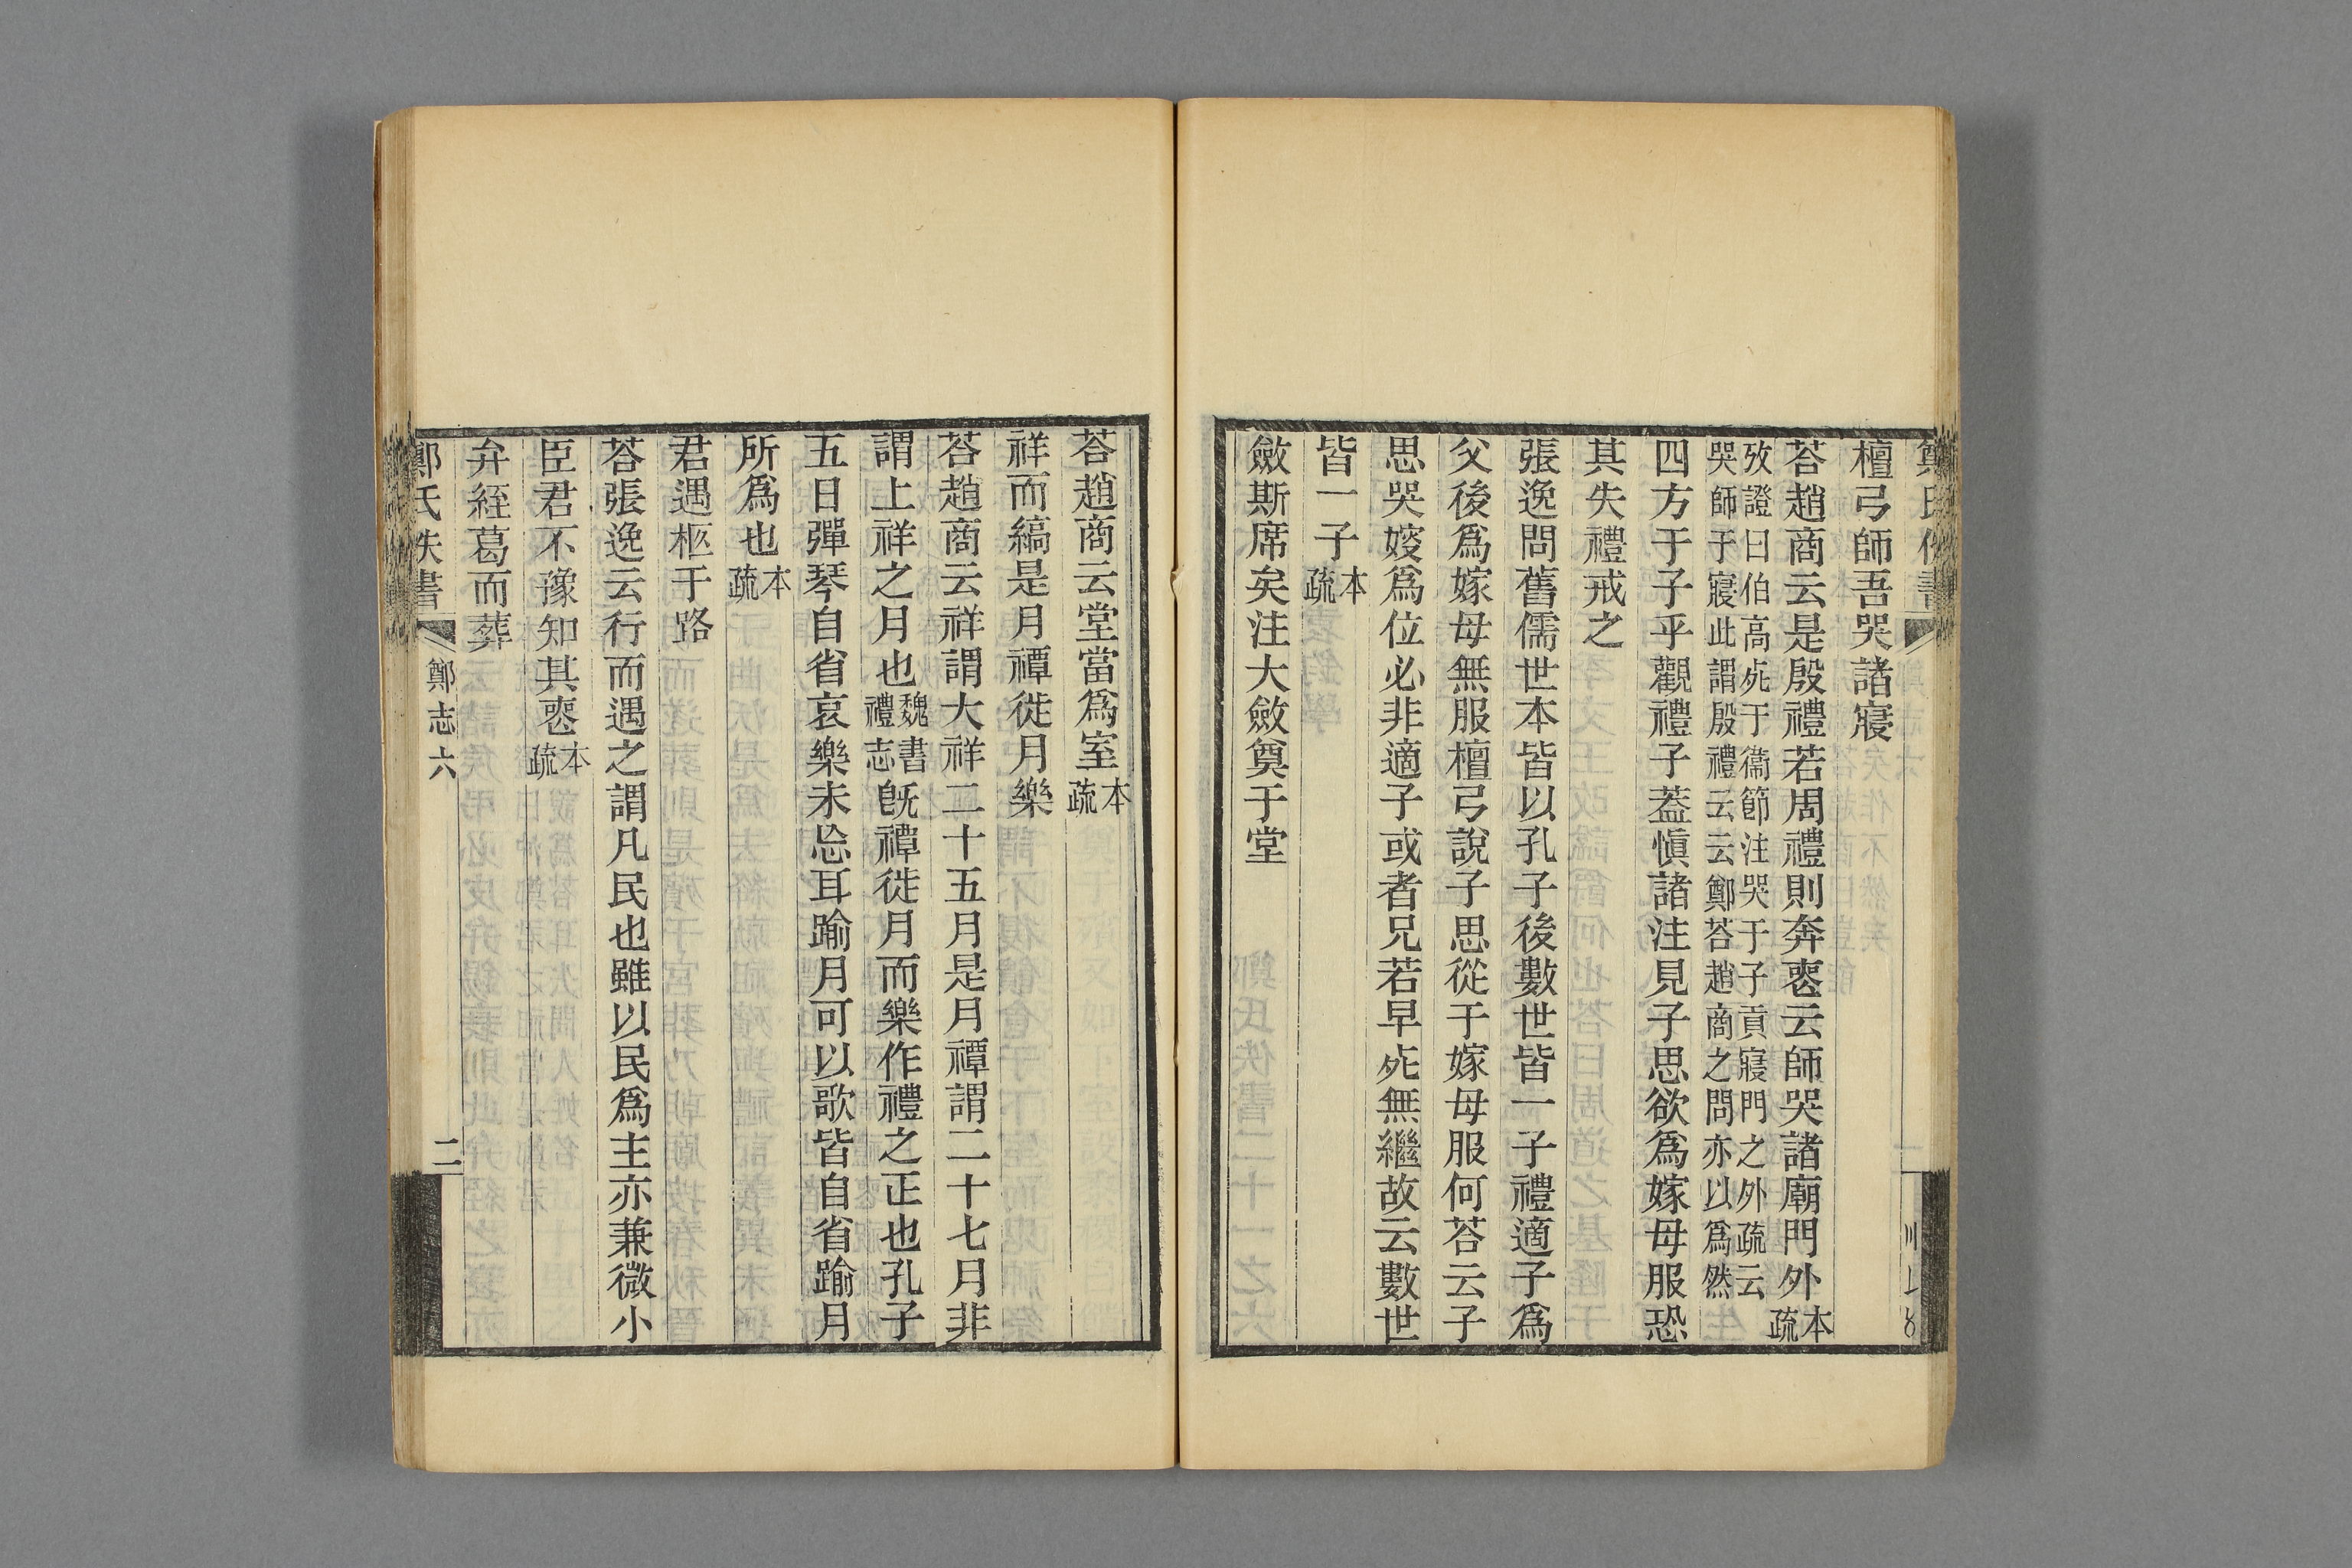 檀弓師吾哭諸寢
荅趙商云是殷禮若周禮則奔喪云師哭諸廟門外本疏
攷證曰伯高死于衞節注哭于子貢寢門之外疏云
哭師于寢此謂殷禮云云鄭荅趙商之問亦以爲然
四方于子乎觀禮子蓋愼諸注見子思欲爲嫁母服恐
其失禮戒之
張逸問舊儒世本皆以孔子後數世皆一子禮適子爲
父後爲嫁母無服檀弓說子思從于嫁母服何荅云子
思哭嫂爲位必非適子或者兄若早死無繼故云數世
皆一子本疏
斂斯席矣注大斂奠于堂
荅趙商云堂當爲室本疏
祥而縞是月禫徙月樂
荅趙商云祥謂大祥二十五月是月禫謂二十七月非
謂上祥之月也魏書禮志旣禫徙月而樂作禮之正也孔子
五日彈琴自省哀樂未忘耳踰月可以歌皆自省踰月
所爲也本疏
君遇柩于路
荅張逸云行而遇之謂凡民也雖以民爲主亦兼微小
臣君不豫知其喪本疏
弁絰葛而葬
鄭氏佚書
鄭志六
二